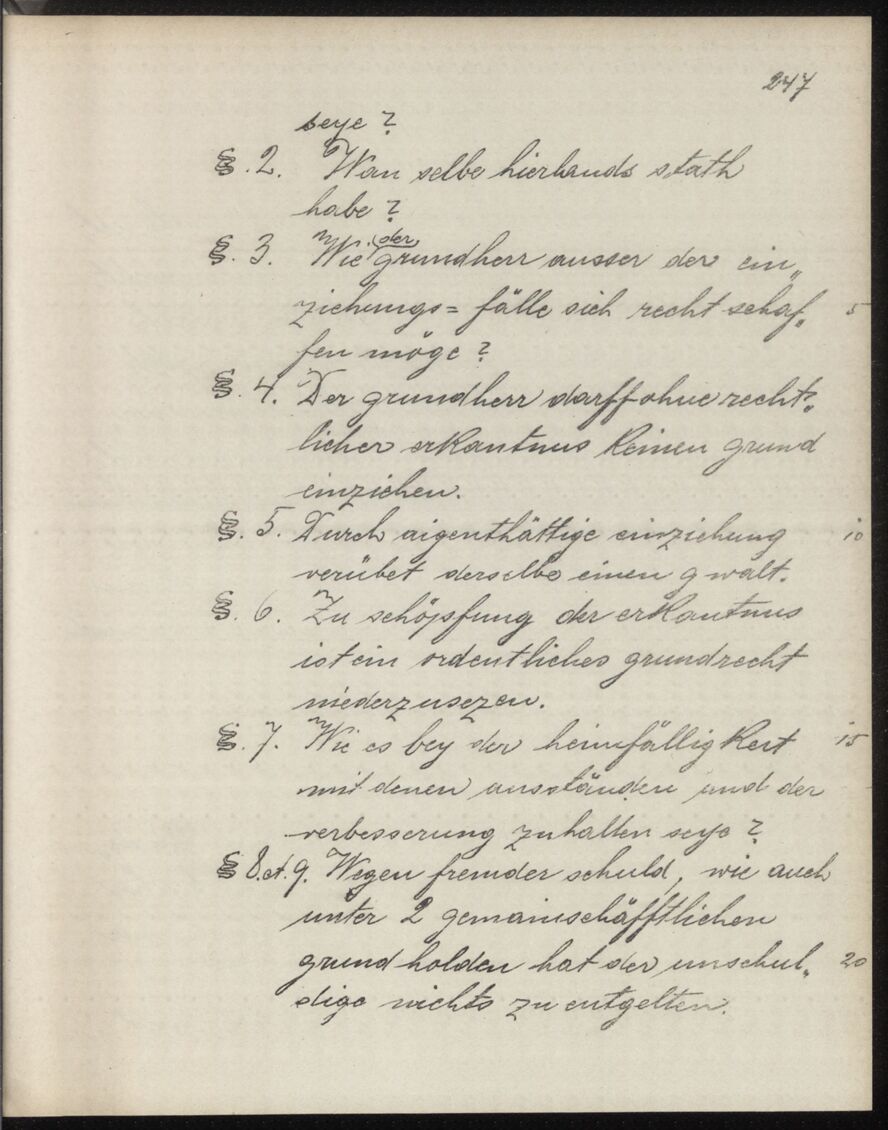 247
seye?
§. 2. Wan selbe hierlands stath
habe?
§. 3. Wie (der) grundherr ausser der ein„
ziehungs= fälle sich recht schaf„ 5
fen möge?
§. 4. Der grundherr darff ohne recht„
licher erkantnus keinen grund
einziehen.
§. 5. Durch aigenthättige einziehung 10
verübet derselbe einen gwalt.
§. 6. Zu schöpfung der erkantnus
ist ein ordentliches grundrecht
niederzusezen.
§. 7. Wie es bey der heimfälligkeit 15
mit denen ausständen und der
verbesserung zuhalten seye?
§ 8. et. 9. Wegen fremder schuld, wie auch
unter 2 gemainschäfftlichen
grundholden hat der unschul„ 20
dige nichts zu entgelten.